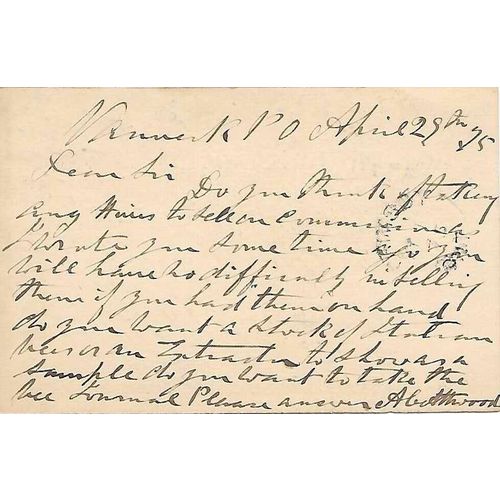 Vennachar P O April 29th 75
Dear Sir
Do you think of taking
any Hives to sell on Commission as
I wrote you some time ago you
will have no difficulty in selling
them if you had them on hand
do you want a stock of Italian
bees or an Extractor to show as a
sample do you want to take the
bee Journal Please answer